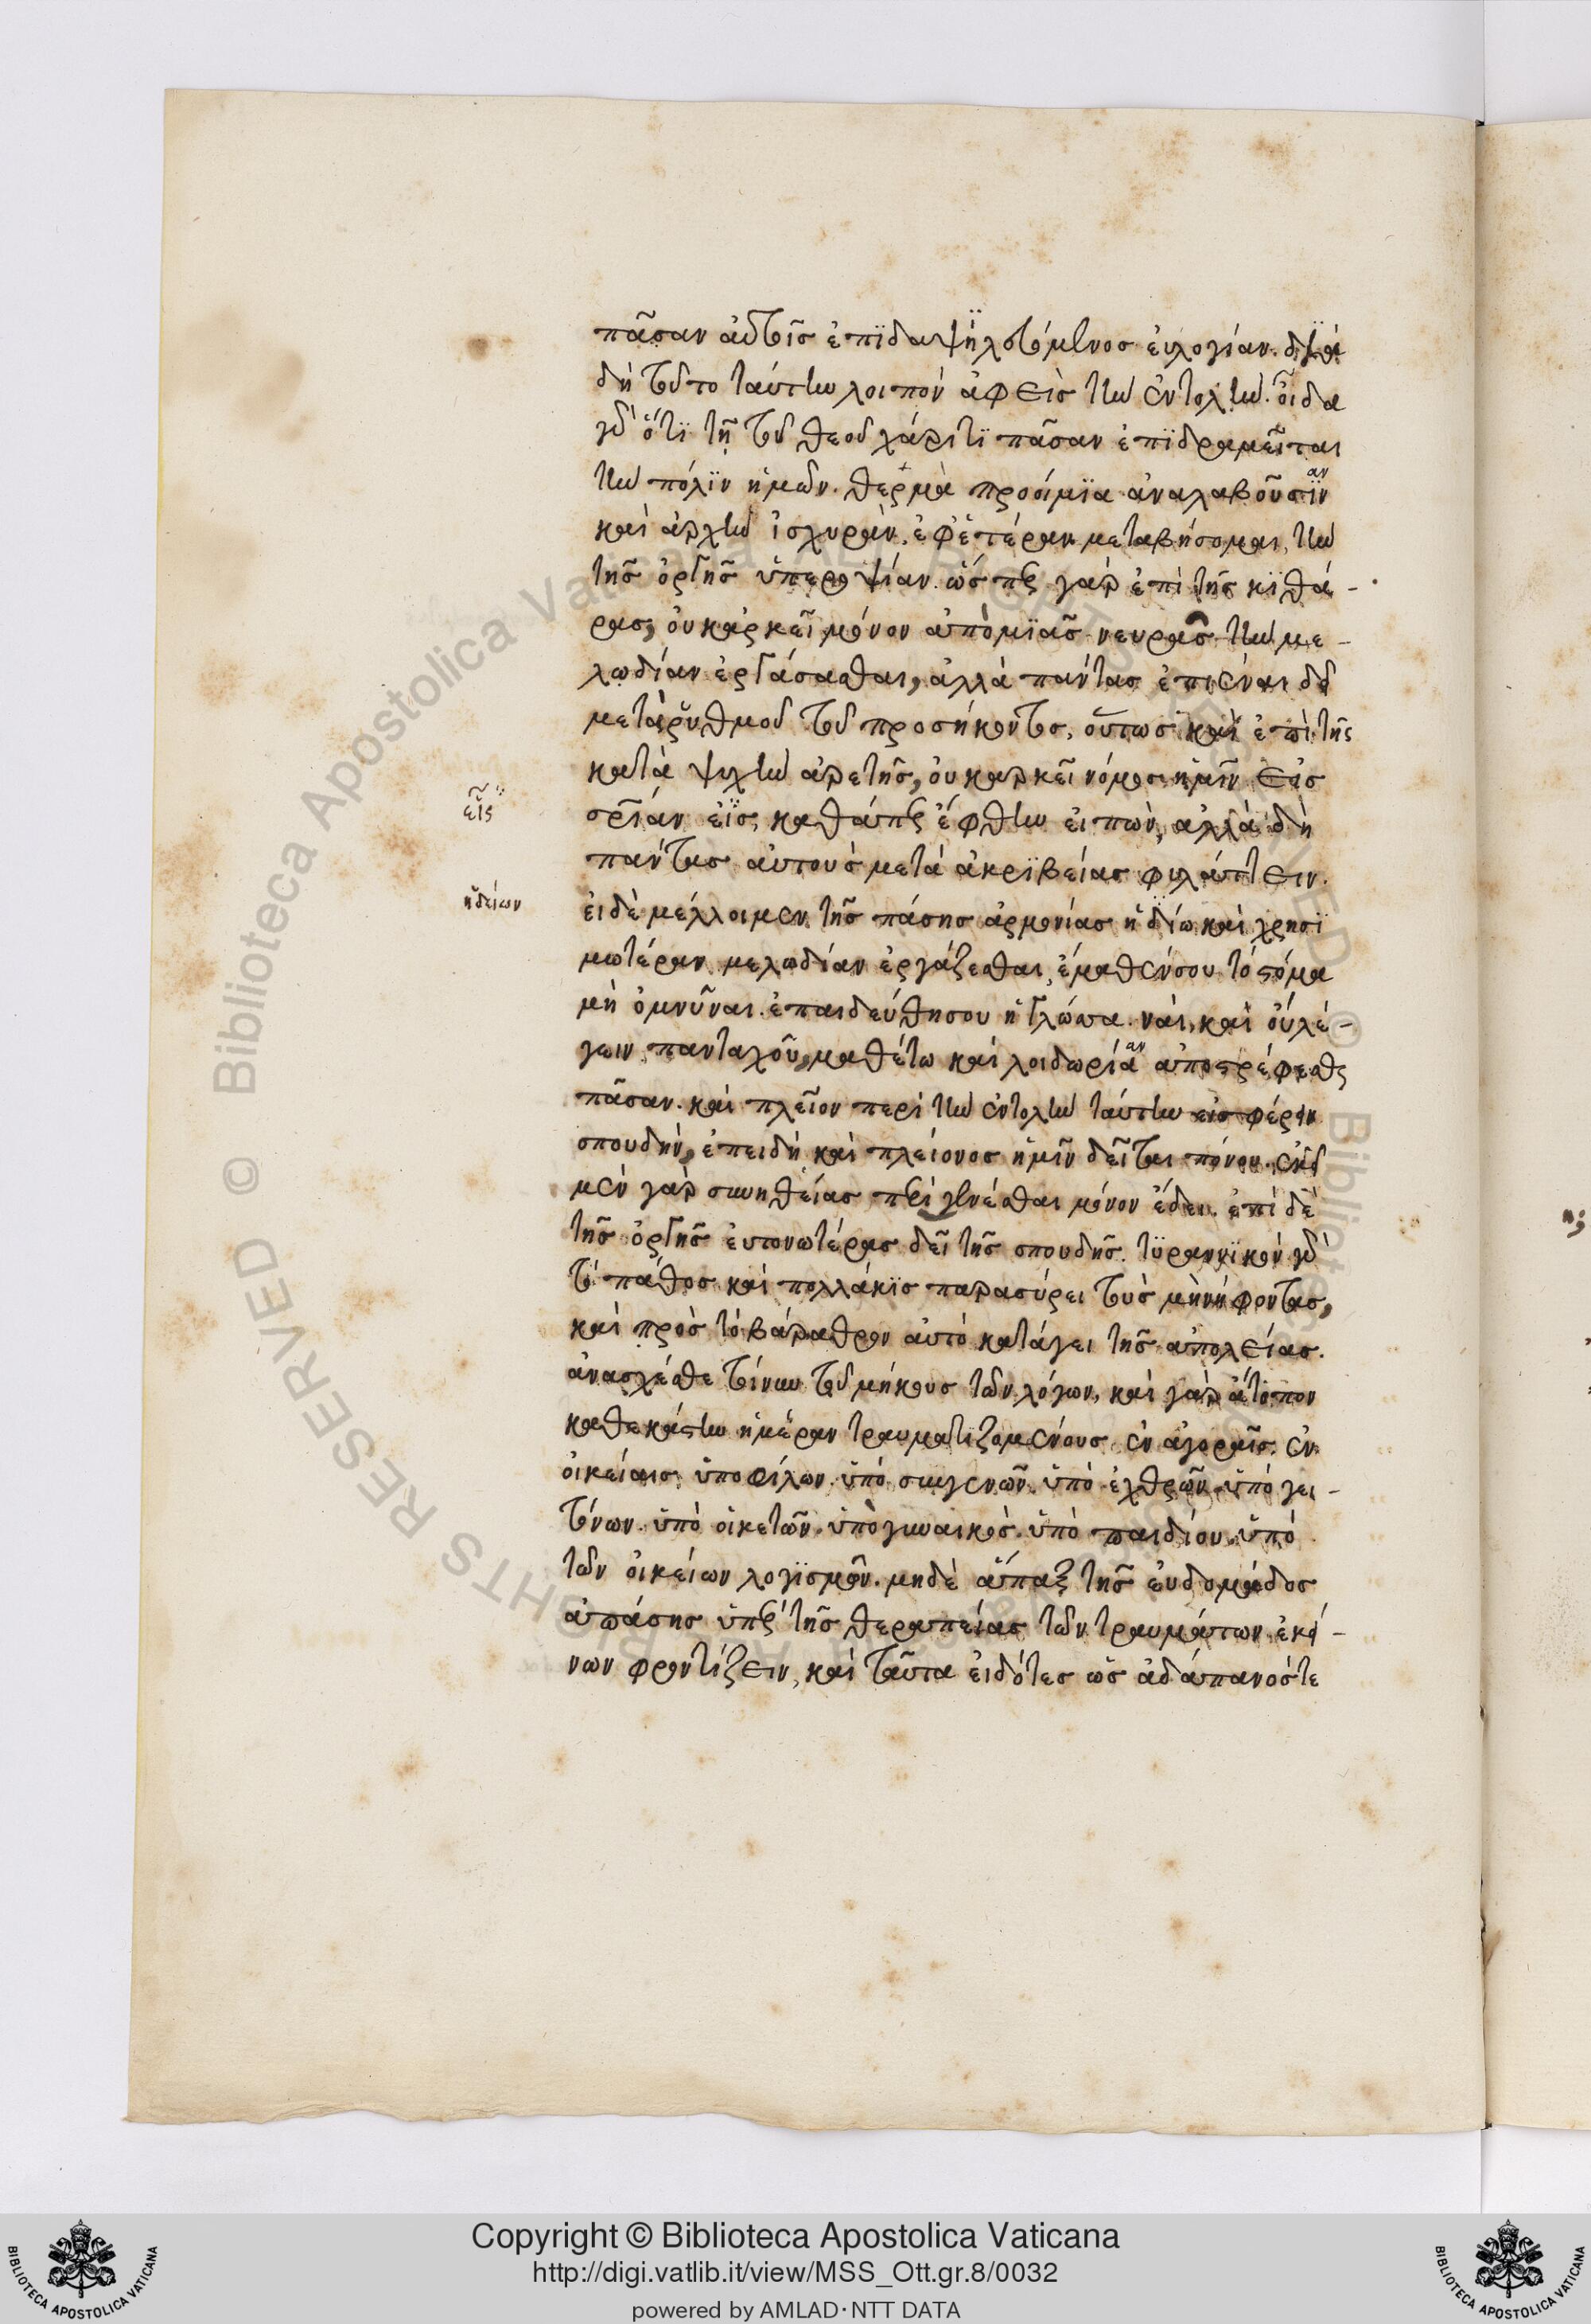 πᾶσαν αὐτοῖς ἐπϊδαψηλευόμενος ἐυλογίαν.
δὴ τοῦτο ταύτην λοιπὸν ἀφεὶς τὴν ἐντολὴν. οἶδα
γὰρ ὅτϊ τῇ τοῦ θεοῦ χάριτϊ πᾶσαν ἐπϊδραμεῖται
τὴν πόλϊν ἡμῶν. θερμὰ προοίμϊα ἀναλαβοῦσϊν
αν
καὶ ἀρχὴν ἰσχυρὰν. ἐφ' ἑτέραν μεταβήσομαι, τὴν
τῆς ὀργῆς ὑπεροψίαν. ὥσπερ γὰρ ἐπὶ τῆς κϊθά-
ρας, ὀυκ ἀρκεῖ μόνον ἀπὸ μϊᾶς νευρᾶς τὴν με-
λωδίαν ἐργάσασθαι, ἀλλὰ πάντας ἐπιέναι δεῖ
μετὰ ῥυθμοῦ τοῦ προσήκοντος, οὕτως καὶ ἐπὶ τῆς
κατὰ ψυχὴν ἀρετῆς, ὀυκ ἀρκεῖ νόμος ἡμῖν εἰς
σρίαν εἷς, καθάπερ ἔφθην ἐιπὼν, ἀλλὰ δὴ
εἷς
πάντας αὐτοὺς μετὰ ἀκρϊβείας φυλάττειν.
ἐι δὲ μέλλοιμεν τῆς πάσης ἁρμονίας ἡδίω καὶ χρησϊ
ἡδείων
μωτέραν μελωδίαν ἐργάζεσθαι, ἔμαθέν σου τὸ στόμα
μὴ ὀμνῦναι. ἐπαιδεύθη σου ἡ γλῶττα. ναὶ, καὶ ὀύ λέ-
γειν πανταχοῦ, μαθέτω καὶ λοιδωρία ἀποστρέφεσθαι
αν
πᾶσαν. καὶ πλεῖον περὶ τὴν ἐντολὴν ταύτην εἰσφέρειν
σπουδὴν, ἐπειδὴ καὶ πλείονος ἡμῖν δεῖται πόνου. ἐκεῖ
μὲν γὰρ συνηθείας περιγενέσθαι μόνον ἔδει. ἐπὶ δὲ
τῆς ὀργῆς ἐυτονωτέρας δεῖ τῆς σπουδῆς. τϋραννϊκὸν γὰρ
τὸ πάθος καὶ πολλάκϊς παρασύρει τοὺς μὴ νήφοντας,
καὶ πρὸς τὸ βάραθρον αὐτὸ κατάγει τῆς ἀπολείας.
ἀνάσχεσθε τοίνυν τοῦ μήκους τῶν λόγων, καὶ γὰρ ἄτοπον
καθεκάστην ἡμέραν τραυματιζομένους ἐν ἀγοραῖς. ἐν
ὀικείαις ὑπο φίλων. ὑπὸ συγγενῶν. ὑπὸ ἐχθρῶν. ὑπὸ γει-
τόνων. ὑπὸ ὀικετῶν. ὑπὸ γυναικὸς. ὑπὸ παιδίου. ὑπὸ
τῶν ὀικείων λογϊσμῶν. μηδὲ ἅπαξ τῆς ἑυδομάδος
ἁπάσης ὑπὲρ τῆς θεραπείας τῶν τραυμάτων ἐκεί-
νων φροντίζειν, καὶ ταῦτα ἐιδότες ὡς ἀδάπανος τε
Copyright © Biblioteca Apostolica Vaticana
http://digi.vatlib.it/view/MSS_Ott.gr.8/0032
powered by AMLAD·NTT DATA